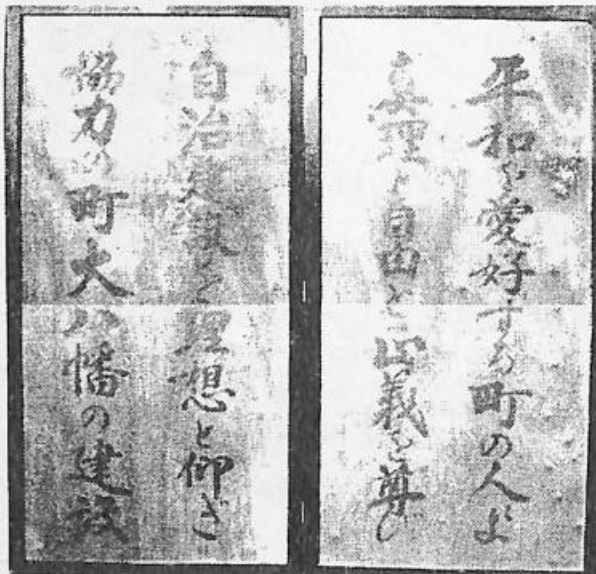 平和を愛好する町の人よ
真理と自由と正義を尊び
自治 理想と仰ぎ
協力の町大八幡の建設